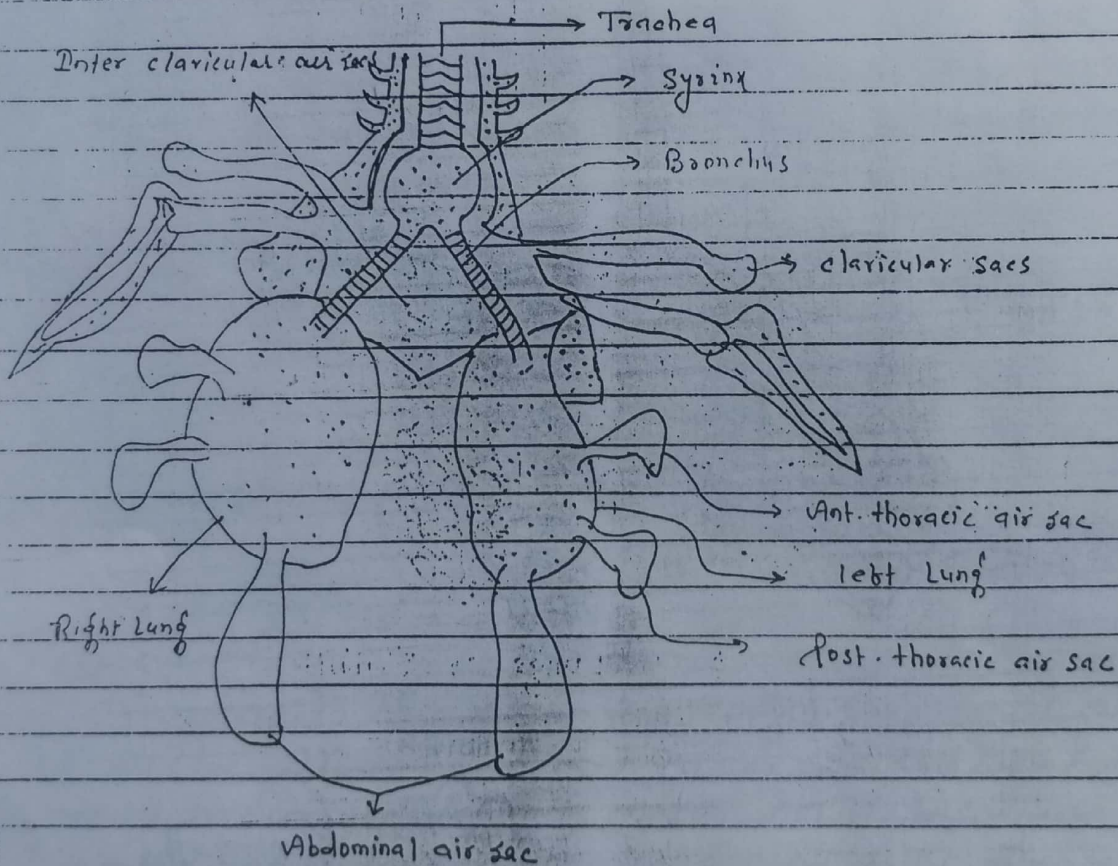 Trachea
Inter clavicular air sac
Syrinx
Bronchus
clavicular sacs
Ant. thoracic air sac
left Lung
Right Lung
Post. thoracic air sac
Abdominal air sac